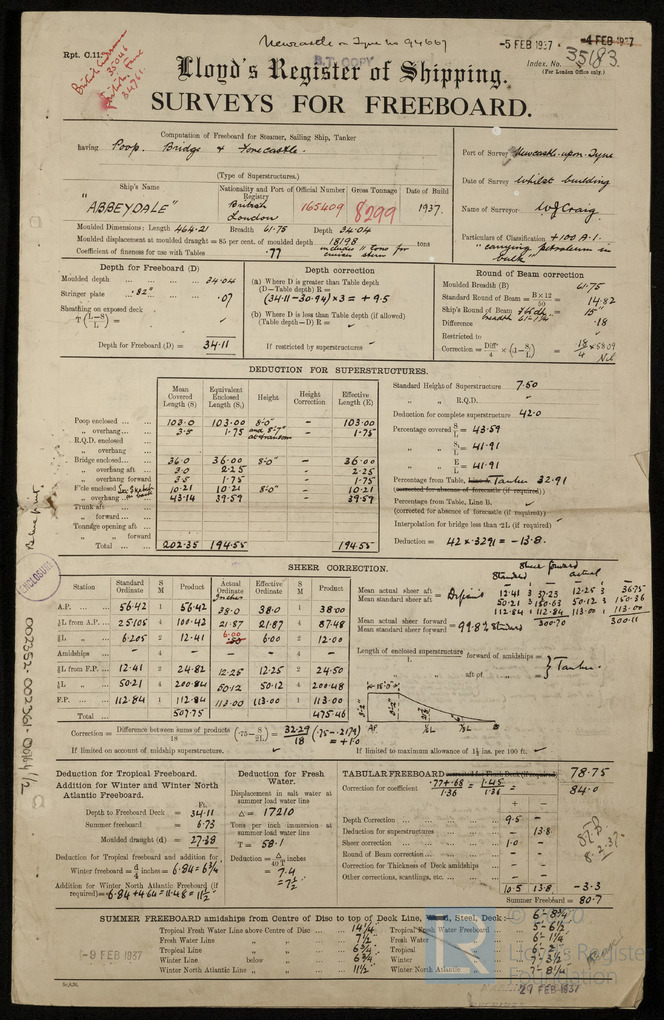 Newcastle on Tyne No 94667
-5 FEB 1937
-4 FEB 1937
Rpt. C.11.
B.T. COPY
Index. No. 35183
(For London Office only.)
British
35046
34761
Lloyd's Register of Shipping.
SURVEYS FOR FREEBOARD.
Computation of Freeboard for Steamer, Sailing Ship, Tanker
having Poop, Bridge & Forecastle.
(Type of Superstructures.)
Port of Survey Newcastle-upon-Tyne
Date of Survey Whilst building
Name of Surveyor WJ Craig.
Particulars of Classification +100 A.1.
"carrying petroleum in bulk"
Ship's Name
Nationality and Port of Registry
Official Number
Gross Tonnage
Date of Build
"ABBEYDALE"
British
London
165409
8299
1937.
Moulded Dimensions: Length 464.21 Breadth 61.75 Depth 34.04
Moulded displacement at moulded draught = 85 per cent. of moulded depth 18198 tons
includes 11 tons for cruiser stern
Coefficient of fineness for use with Tables .77
Depth for Freeboard (D)
Moulded depth ... 34.04
Stringer plate .82" .07
Sheathing on exposed deck
T (L-S/L) =
Depth for Freeboard (D) = 34.11
Depth correction
(a) Where D is greater than Table depth
(D—Table depth) R =
(34.11-30.94) x 3 = + 9.5
(b) Where D is less than Table depth (if allowed)
(Table depth—D) R =
If restricted by superstructures
Round of Beam correction
Moulded Breadth (B) 61.75
Standard Round of Beam = B×12/50 = 14.82
Ship's Round of Beam = 15"
Difference .18
Restricted to
Correction = Diff/4 × (1-S1/L) = .18/4 × .5809 Nil
DEDUCTION FOR SUPERSTRUCTURES.
Mean Covered Length (S)
Equivalent Enclosed Length (S₁)
Height
Height Correction
Effective Length (E)
Poop enclosed ... 103.0 103.00 8'-0" - 103.00
„ overhang ... 3.5 1.75 and 8'-7" at transom - 1.75
R.Q.D. enclosed
„ overhang
Bridge enclosed... 36.0 36.00 8'-0" 36.00
„ overhang aft ... 3.0 2.25 2.25
„ overhang forward 3.5 1.75 1.75
F'cle enclosed 10.21 10.21 8'-0" 10.21
„ overhang 43.14 39.59 39.59
Trunk aft ...
„ forward ...
Tonnage opening aft ...
„ „ forward
Total ... 202.35 194.55 194.55
Standard Height of Superstructure 7.50
„ „ R.Q.D.
Deduction for complete superstructure 42.0
Percentage covered S/L = 43.59
„ „ S₁/L = 41.91
„ „ E/L = 41.91
Percentage from Table, Line A. Tanker 32.91
(corrected for absence of forecastle (if required))
Percentage from Table, Line B.
(corrected for absence of forecastle (if required))
Interpolation for bridge less than ·2L (if required)
Deduction = 42 x .3291 = -13.8.
Blue print.
ENCLOSURE
002352-002361-0064 1/2
SHEER CORRECTION.
Station
Standard Ordinate
S M
Product
Actual Ordinate
Inches
Effective Ordinate
S M
Product
A.P. ... 56.42 1 56.42 38.0 38.0 1 38.00
⅙L from A.P. ... 25.105 4 100.42 21.87 21.87 4 87.48
⅓L „ ... 6.205 2 12.41 6.00 6.00 2 12.00
Amidships ... - 4 - - - 4 -
⅓L from F.P. ... 12.41 2 24.82 12.25 12.25 2 24.50
⅙L „ ... 50.21 4 200.84 50.12 50.12 4 200.48
F.P. ... 112.84 1 112.84 113.00 113.00 1 113.00
Total ... 507.75 475.46
Mean actual sheer aft
Mean standard sheer aft = Deficient
Mean actual sheer forward
Mean standard sheer forward = 99.8% Standard
Sheer forward
Standard actual
12.41 3 37.23 12.25 3 36.75
50.21 3 150.63 50.12 3 150.36
112.84 1 112.84 113.00 1 113.00
300.70 300.11
Length of enclosed superstructure forward of amidships =
L
„ aft of „ =
Tanker.
Correction = Difference between sums of products/18 (·75 - S/2L) = 32.29/18 (.75-.2179)
= + 1.0
If limited on account of midship superstructure.
If limited to maximum allowance of 1½ ins. per 100 ft.
Deduction for Tropical Freeboard.
Addition for Winter and Winter North Atlantic Freeboard.
Ft.
Depth to Freeboard Deck = 34.11
Summer freeboard = 6.73
Moulded draught (d) = 27.38
Deduction for Tropical freeboard and addition for
Winter freeboard = d/4 inches = 6.84 = 6¾
Addition for Winter North Atlantic Freeboard (if required) = 6.84 + 4.64 = 11.48 = 11½"
Deduction for Fresh Water.
Displacement in salt water at summer load water line
Δ = 17210
Tons per inch immersion at summer load water line
T = 58.1
Deduction = Δ/40T inches
= 7.4
= 7½"
TABULAR FREEBOARD corrected for Flush Deck (if required) 78.75
Correction for coefficient .77+.68/1.36 = 1.45/1.36 = 84.0
+ -
Depth Correction ... 9.5 -
Deduction for superstructures ... - 13.8
Sheer correction ... 1.0 -
Round of Beam correction ... - -
Correction for Thickness of Deck amidships - -
Other corrections, scantlings, etc. ... - -
10.5 13.8 -3.3
Summer Freeboard = 80.7
8.2.37.
SUMMER FREEBOARD amidships from Centre of Disc to top of Deck Line, Wood, Steel, Deck:— 6'-8¾"
Tropical Fresh Water Line above Centre of Disc ... 14¼"
Fresh Water Line „ „ ... 7½
Tropical Line „ „ ... 6¾"
Winter Line below „ ... 6¾
Winter North Atlantic Line „ „ ... 11½
Tropical Fresh Water Freeboard 5-6½"
Fresh Water „ 6-1¼"
Tropical „ 6-2"
Winter „ 7-3½
Winter North Atlantic „ 7-8¼"
-9 FEB 1937
27 FEB 1937
LR
© 2020
Lloyd's Register
Foundation